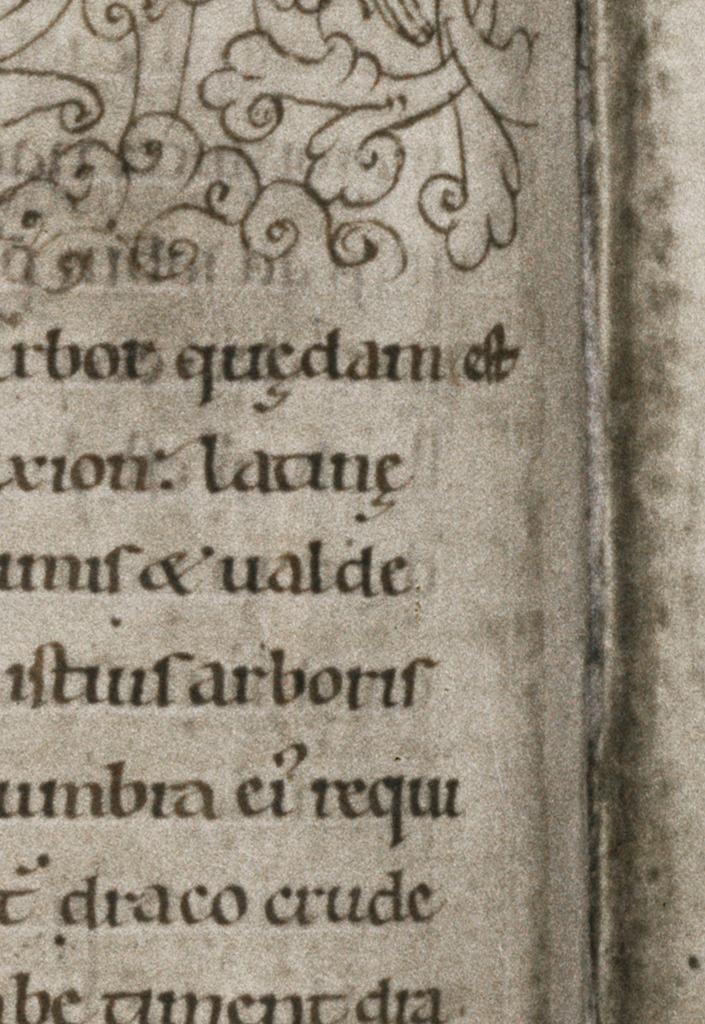 rbor quędam est
xion: latinę
umis & ualde
istius arboris
umbra ei⁹ requi
draco crude
be timent dra